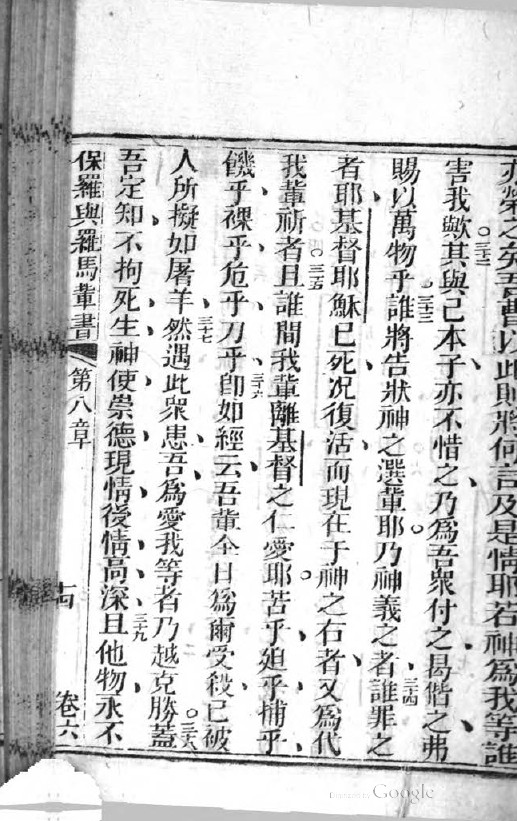 亦榮之矣吾曹以此則將何言及是情耶若神為我等誰
三二
害我歟其與己本子亦不惜之乃為吾眾付之曷偕之弗
三三
賜以萬物乎誰將告狀神之選輩耶乃神義之者誰罪之
三四
者耶基督耶穌已死况復活而現在于神之右者又為代
三五
我輩祈者且誰間我輩離基督之仁愛耶苦乎廹乎捕乎
三六
饑乎裸乎危乎刀乎卽如經云吾輩今日為爾受殺已被
三七
人所擬如屠羊然遇此衆患吾為愛我等者乃越克勝蓋
三八
吾定知不拘死生神使崇德現情後情高深且他物永不
三九
保羅與羅馬輩書 第八章 卷六
Google